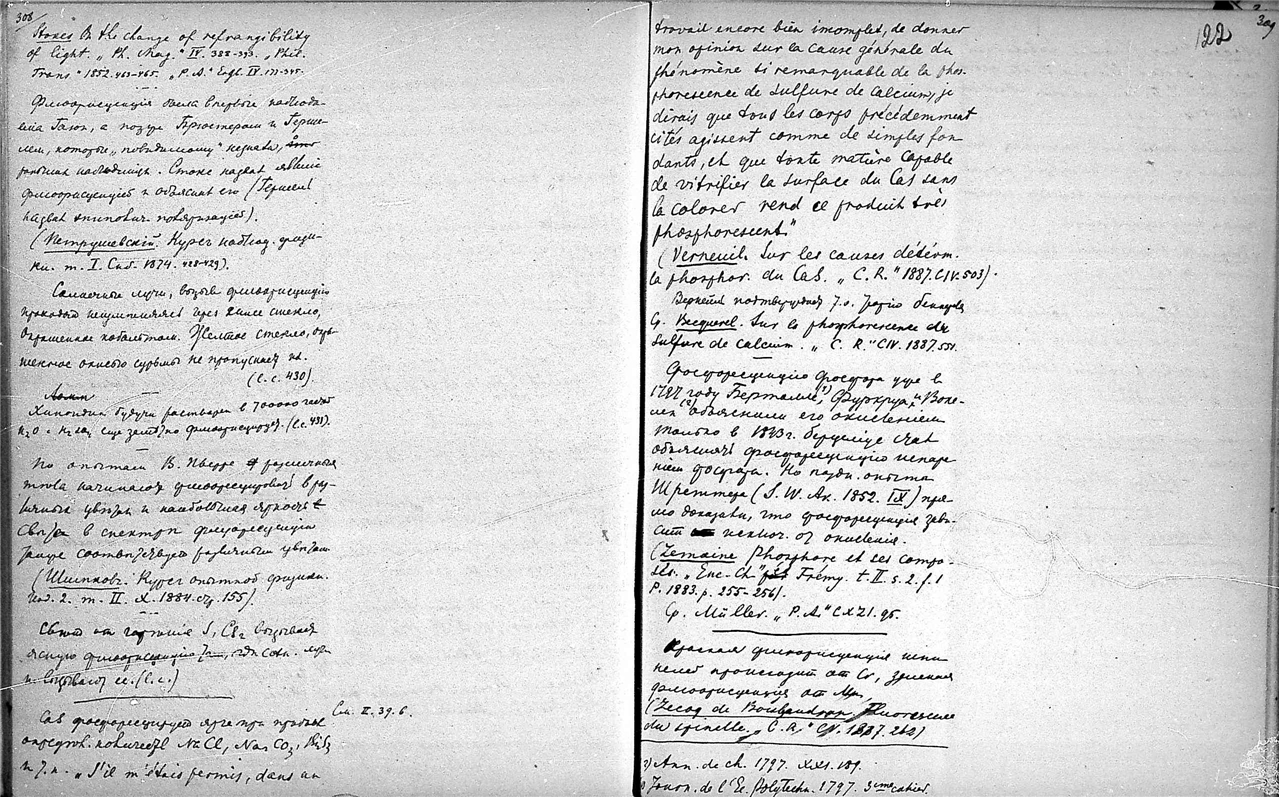 308
Stokes On the change of refrangibility
of light. „Ph. Mag." IV. 388-393. „Phil.
Trans" 1852. 463-465. „P. A." Ergz. IV.
Флюоресценція была впервые наблюда-
ема а позже Брюстеромъ и Герше-
лемъ, которые, „повидимому" не знали,
Стоксъ назвалъ явленіе
флюоресценціей и объяснилъ его (Гершель
назвалъ эпиполич. поляризаціей).
(Петрушевскій. Курсъ наблюд. физи-
ки. т. I. Спб. 1874. 428-429).
Солнечные лучи, вызыв. флюоресценцію
проходятъ черезъ синее стекло,
окрашенное кобальтомъ. Желтое стекло, окра-
шенное окисью не пропускаетъ их.
(l. c. 430).
будучи растворен в 700000 частях
H₂O с еще замѣтно флюоресцируетъ. (l.c. 431).
По опытамъ В. Пьерре различныя
тѣла начинаютъ флюоресцировать в раз-
личныхъ цвѣтахъ и наибольшая яркость
свѣта в спектрѣ флюоресценціи
чаще соотвѣтствуетъ различнымъ цвѣтамъ
(Шимковъ. Курсъ опытной физики.
Изд. 2. т. II. X. 1884. стр. 155).
Свѣтъ от горѣнія S, вызывая
ясную флюоресценцію
не вызываютъ ее. (l. c.)
CaS фосфоресцируетъ ярче при прибавк.
опредѣл. количеств NaCl, Na₂CO₃,
и т. п. „S'il m'était permis, dans un
См. II. 39. б.
309
122
travail encore bien incomplet, de donner
mon opinion sur la cause générale du
phénomène si remarquable de la phos-
phorescence de sulfure de calcium, je
dirais que tous les corps précédemment
cités agissent comme de simples fon-
dants, et que toute matière capable
de vitrifier la surface du CaS sans
la colorer rend ce produit très
phosphorescent."
(Verneuil. Sur les causes déterm.
la phosphor. du CaS. „C. R." 1887. CIV. 503).
Вернейль подтверждаетъ
Ср. Becquerel. Sur la phosphorescence du
sulfure de calcium. „C. R." CIV. 1887. 551.
Фосфоресценцію фосфора уже в
1797 году Бертолле¹⁾, Фуркруа и Воке-
лен²⁾ объяснили его окисленіемъ
только в 1843 г. Берцеліус сталъ
объяснять фосфоресценцію испаре-
ніемъ фосфора. Но опыты
Шреттера (S. W. Ak. 1852. IX) пря-
мо доказали, что фосфоресценція зави-
ситъ исключ. от окисленія.
(Lemoine Phosphore et ses compo-
sés. „Enc. Ch" Frémy. t. II. s. 2. f. 1
P. 1883. p. 255-256).
Ср. Müller. „P. A." CXLI. 95.
Красная флюоресценція шпи-
нелей происходитъ от Cr, зеленая
флюоресценція от Mn,
(Lecoq de Boisbaudran. Fluorescence
du spinelle. „C. R." CV. 1887. 262)
Ann. de ch. 1797. XXI. 189.
Journ. de l'Ec. Polytechn. 1797. 3ème cahier.